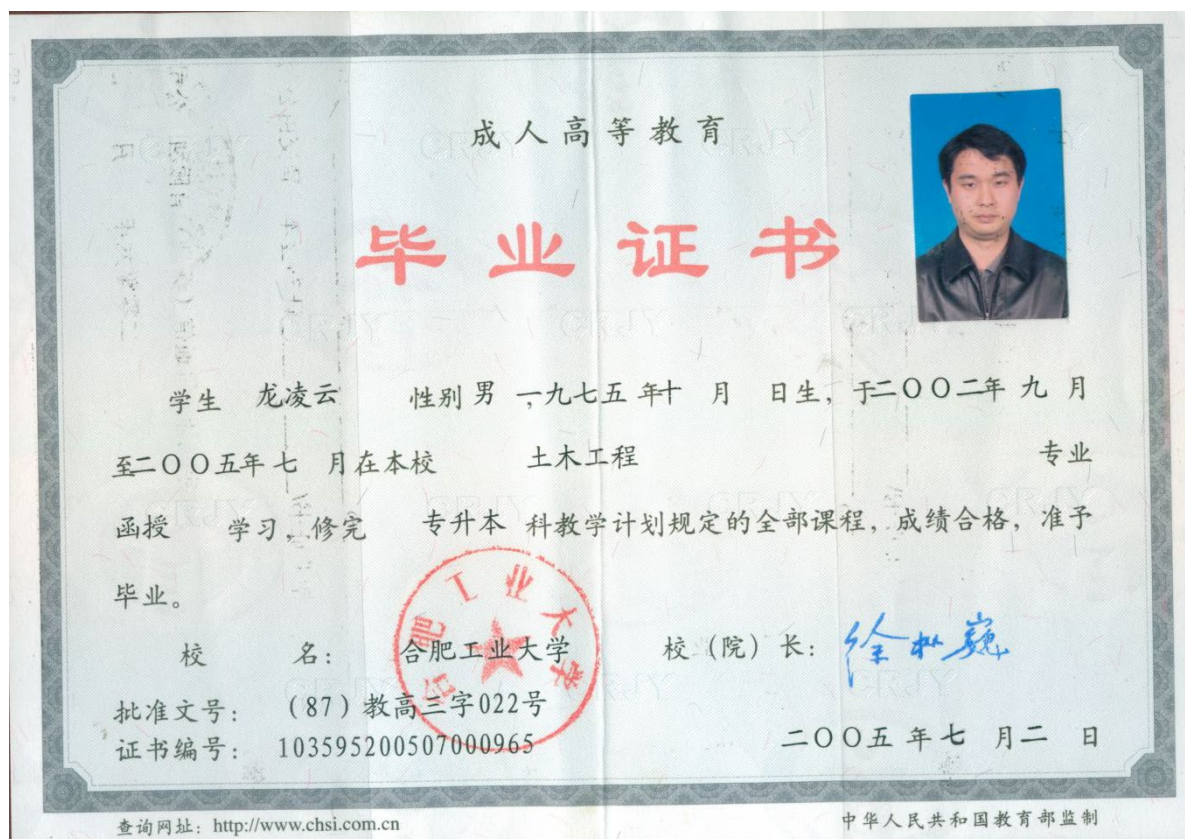 成人高等教育
毕业证书
学生 龙凌云 性别 男 ,一九七五 年十 月 日生, 于二〇〇二年 九 月
至二〇〇五年 七 月在本校 土木工程 专业
函授 学习, 修完 专升本 科教学计划规定的全部课程, 成绩合格, 准予
毕业。
校 名: 合肥工业大学 校 (院) 长: 徐枞巍
合肥工业大学
批准文号: (87) 教高三字022号
证书编号: 103595200507000965
二〇〇五 年 七 月 二 日
查询网址: http://www.chsi.com.cn 中华人民共和国教育部监制